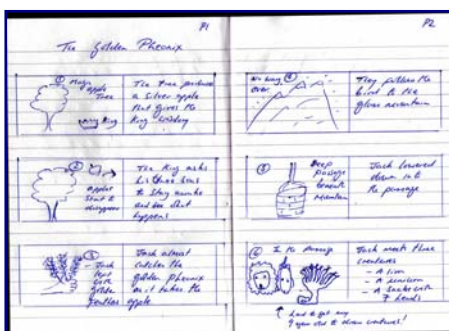 P1
The Golden Pheonix
① Magic
apple
Tree
King
The Tree produces
a Silver apple
that gives the
King
②
apples
Start to
disappear
The King asks
his three sons
to stay awake
and see what
happens
③
Jack
left
with
golden
feather
Jack almost
catches the
golden pheonix
as it takes the
apple
P2
No way
over
④
They follow the
bird to the
glass mountain
⑤
Deep
passage
beneath
Mountain
Jack lowered
down into
the passage
⑥ In the passage
Jack meets three
creatures
- A lion
- A unicorn
- A snake with
7 heads
↑ had to get my
9 year old to draw creatures!